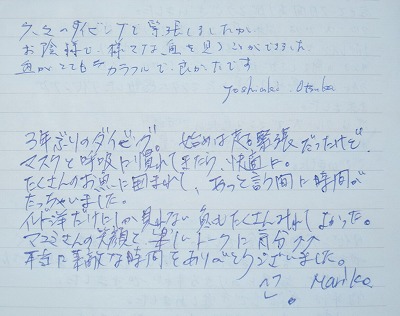 久々のダイビングで緊張しましたが
お陰様で、様々な魚を見ることができました
魚がとてもカラフルで、良かったです
Yoshiaki Otsuka
3年ぶりのダイビング。始めは超緊張だったけど、
マスクと呼吸に慣れてきたら、快適に。
たくさんのお魚に囲まれて、あっと言う間に時間が
たっちゃいました。
インド洋だけにしか見れない魚もたくさんみれてうれしかった。
マユミさんの笑顔と楽しいトークに気分↑↑
本当に素敵な時間をありがとうございました。
Mariko